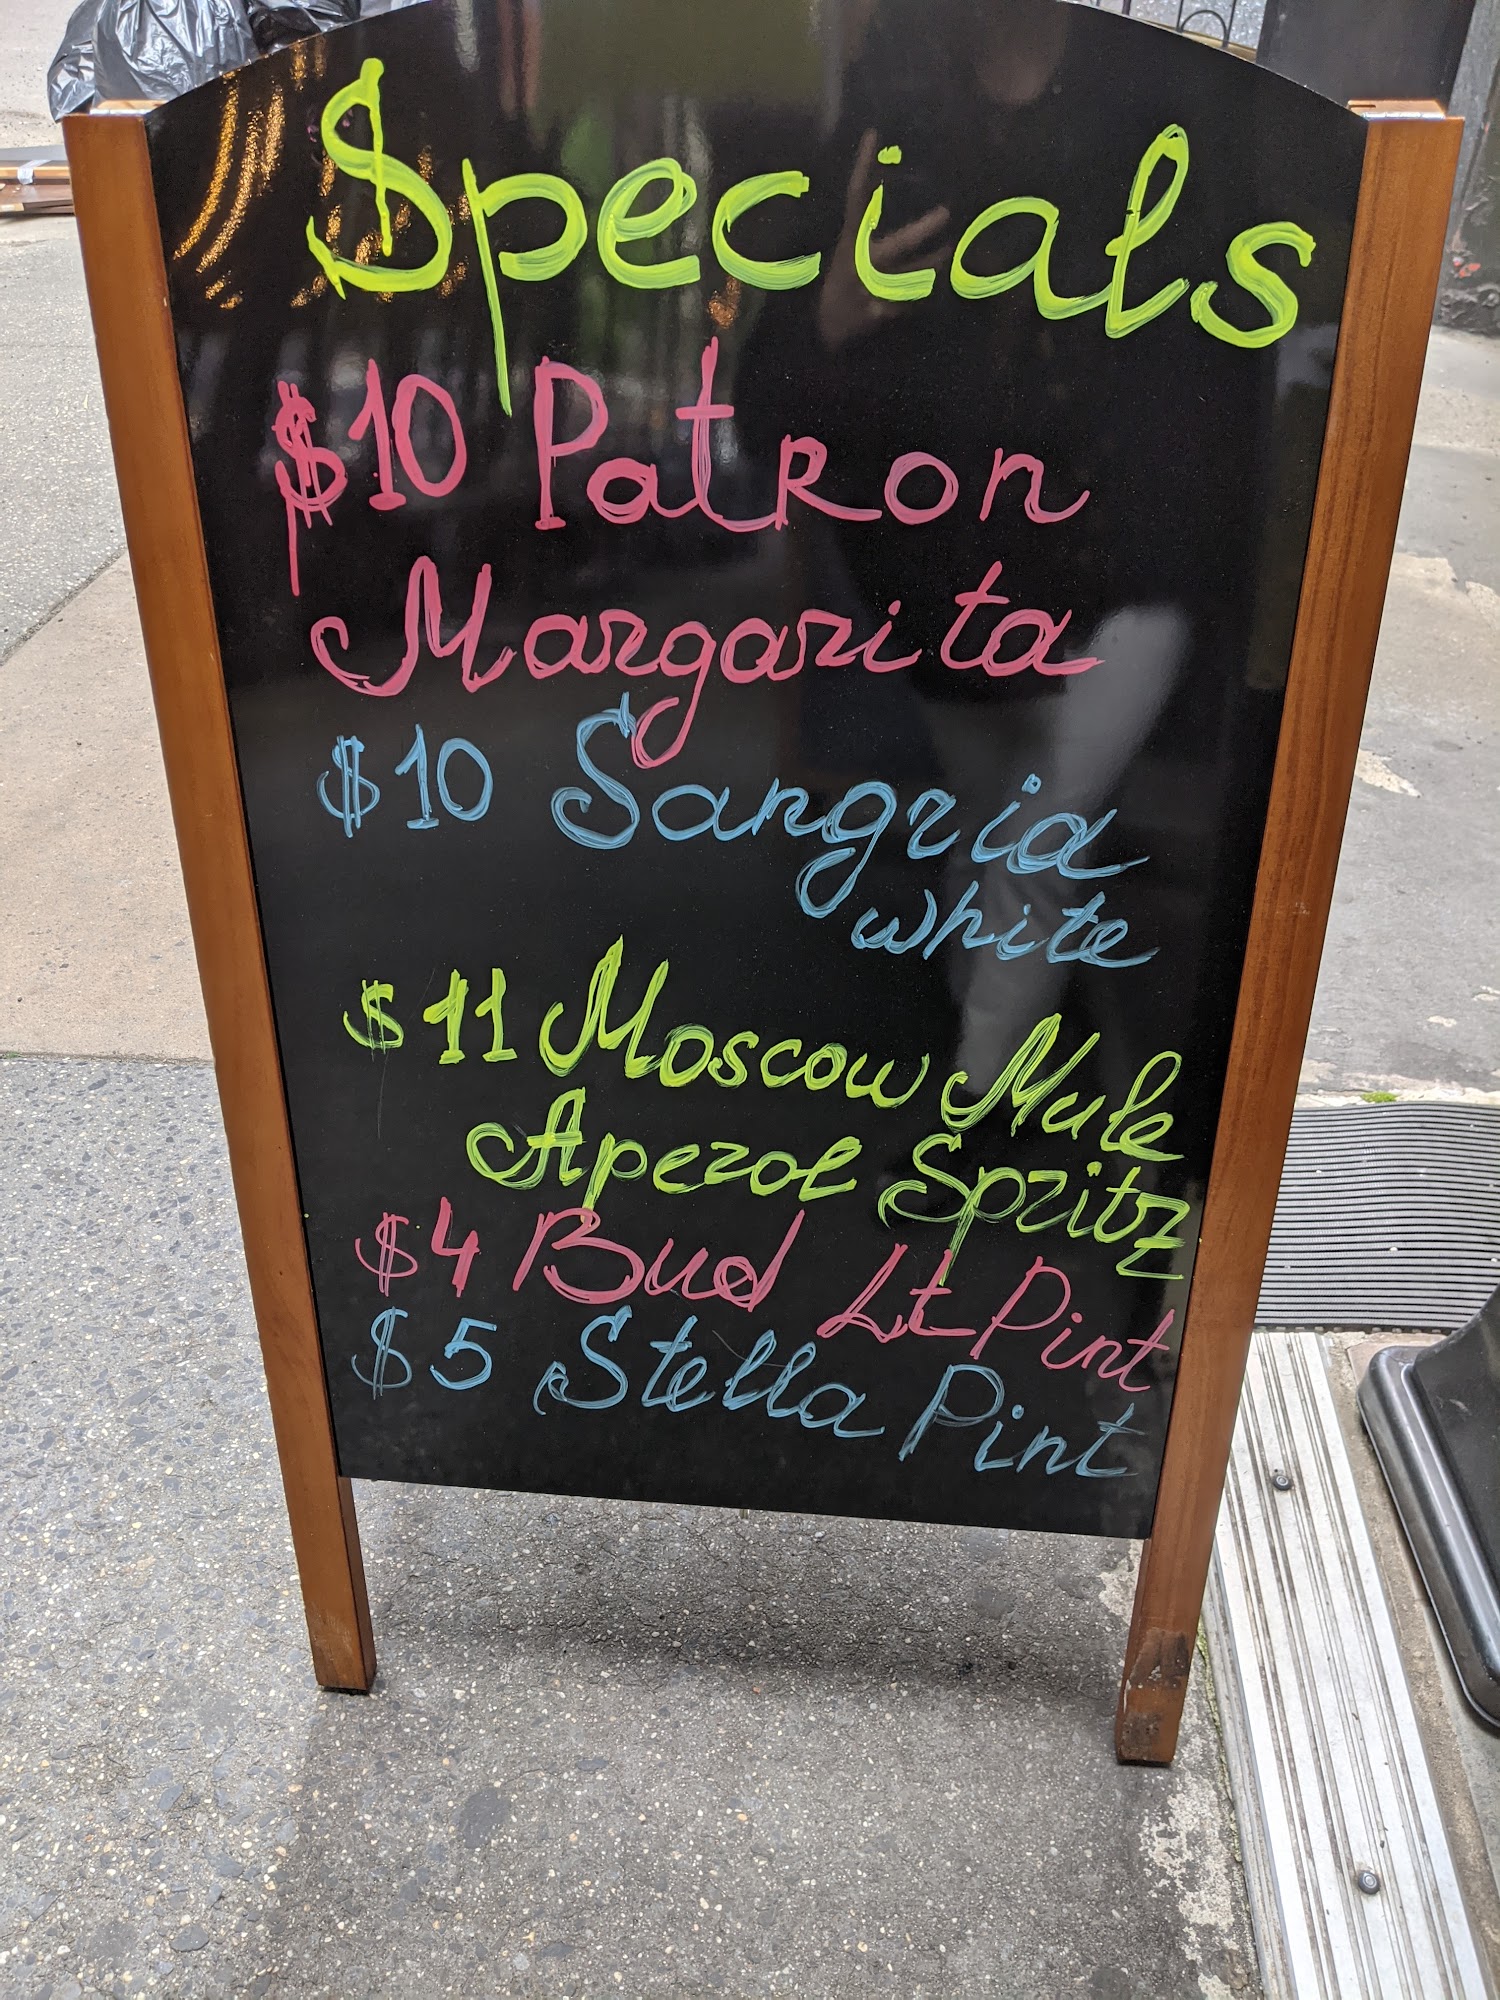 Specials
$10 Patron
Margarita
$10 Sangria
white
$11 Moscow Mule
Aperol Spritz
$4 Bud Lt Pint
$5 Stella Pint